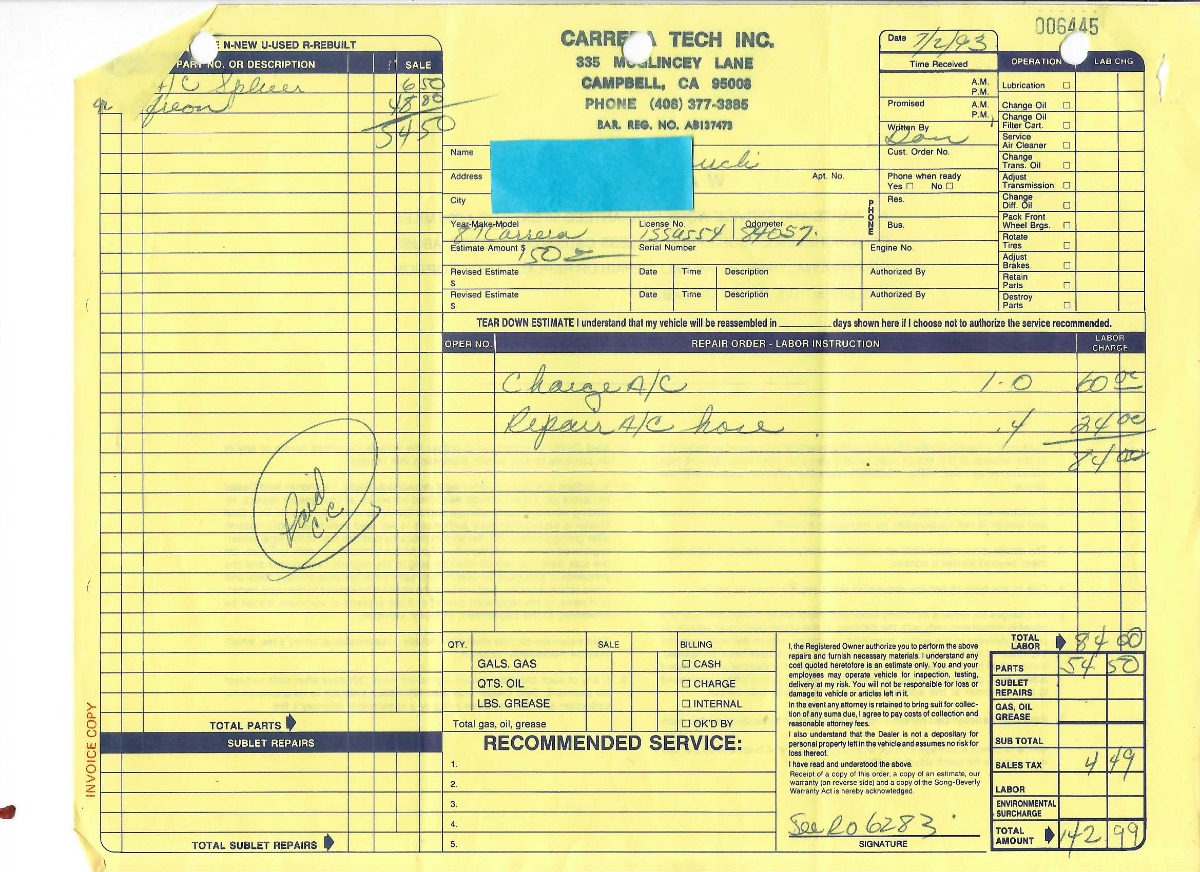 006445
N-NEW U-USED R-REBUILT
PART NO. OR DESCRIPTION SALE
A/C Splicer 6 50
freon 48 00
54 50
Paid
C.C.
TOTAL PARTS
SUBLET REPAIRS
TOTAL SUBLET REPAIRS
INVOICE COPY
CARRERA TECH INC.
335 McGLINCEY LANE
CAMPBELL, CA 95008
PHONE (408) 377-3385
BAR. REG. NO. AB137473
Date 7/2/93
Time Received
A.M.
P.M.
Promised A.M.
P.M.
Written By
Don
Cust. Order No.
Phone when ready
Yes No
PHONE
Res.
Bus.
Name
Address Apt. No.
City
Year-Make-Model License No. Odometer
87 Carrera 84057
Estimate Amount $ 150 Serial Number Engine No.
Revised Estimate Date Time Description Authorized By
$
Revised Estimate Date Time Description Authorized By
$
OPERATION LAB CHG
Lubrication
Change Oil
Change Oil
Filter Cart.
Service
Air Cleaner
Change
Trans. Oil
Adjust
Transmission
Change
Diff. Oil
Pack Front
Wheel Brgs.
Rotate
Tires
Adjust
Brakes
Retain
Parts
Destroy
Parts
TEAR DOWN ESTIMATE I understand that my vehicle will be reassembled in ________ days shown here if I choose not to authorize the service recommended.
OPER NO. REPAIR ORDER - LABOR INSTRUCTION LABOR CHARGE
Charge A/C 1.0 60 00
Repair A/C hose .4 24 00
84 00
QTY. SALE BILLING
GALS. GAS CASH
QTS. OIL CHARGE
LBS. GREASE INTERNAL
Total gas, oil, grease OK'D BY
RECOMMENDED SERVICE:
1.
2.
3.
4.
5.
I, the Registered Owner authorize you to perform the above
repairs and furnish necessary materials. I understand any
cost quoted heretofore is an estimate only. You and your
employees may operate vehicle for inspection, testing,
delivery at my risk. You will not be responsible for loss or
damage to vehicle or articles left in it.
In the event any attorney is retained to bring suit for collec-
tion of any sums due, I agree to pay costs of collection and
reasonable attorney fees.
I also understand that the Dealer is not a depositary for
personal property left in the vehicle and assumes no risk for
loss thereof.
I have read and understood the above.
Receipt of a copy of this order, a copy of an estimate, our
warranty (on reverse side) and a copy of the Song-Beverly
Warranty Act is hereby acknowledged.
See RO 6283
SIGNATURE
TOTAL LABOR 84 00
PARTS 54 50
SUBLET REPAIRS
GAS, OIL GREASE
SUB TOTAL
SALES TAX 4 49
LABOR
ENVIRONMENTAL SURCHARGE
TOTAL AMOUNT 142 99